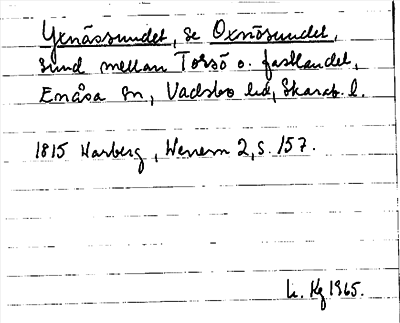 Yxnässundet, se Oxnösundet,
sund mellan Torsö o. fastlandet,
Enåsa sn, Vadsbo hd, Skarab. l.
1815 Warberg, Wenern 2, s. 157.
L. Kg 1965.